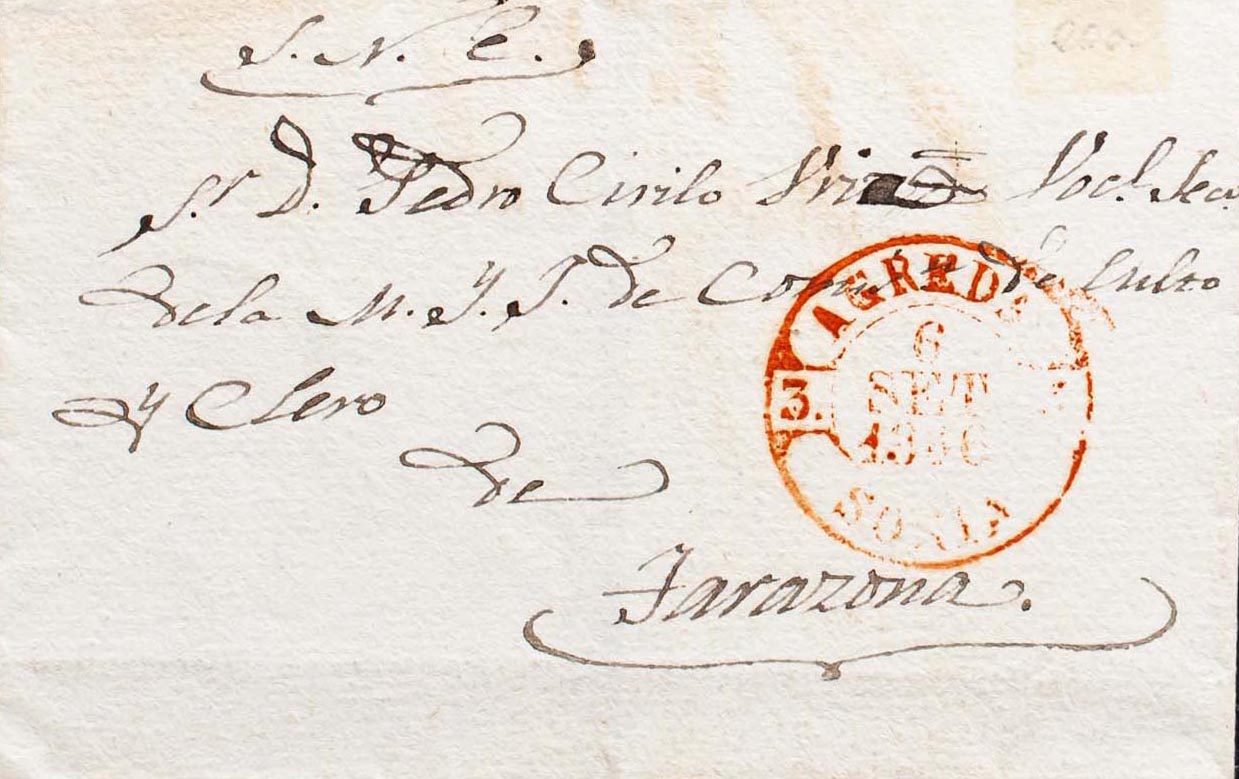 S. N. C.
S.r D. Pedro Cirilo Vriz Voc.l Sec.
de la M. Y. J. de Com.n de Culto
y Clero
de
Tarazona.
AGREDA
6
SET
3.
SORIA